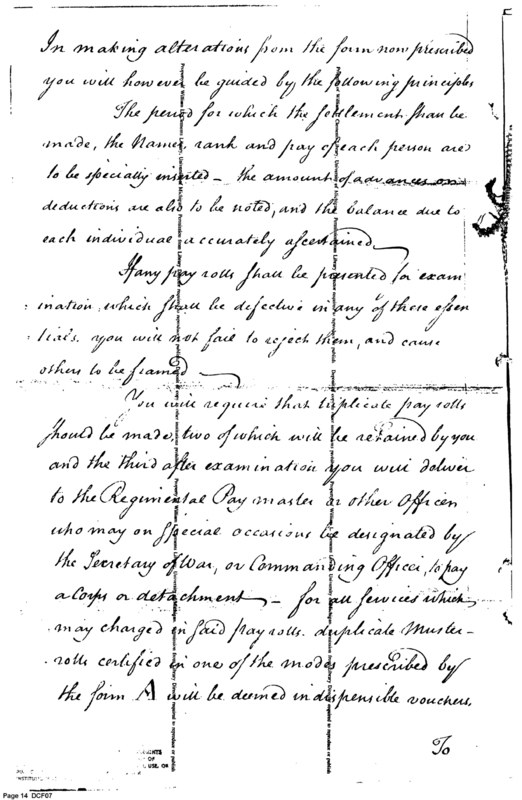 In making alterations from the form now prescribed
you will however be guided by the following principles
The period for which the Settlement shall be
made, the Names, rank and pay of each person are
to be specially inserted – the amount of advances or
deductions are also to be noted, and the balance due to
each individual accurately ascertained
If any pay rolls shall be presented for exam
ination, which shall be defective in any of these essen
tials. you will not fail to reject them, and cause
others to be framed
You will require that triplicate pay rolls
should be made, two of which will be retained by you
and the third after examination you will deliver
to the Regimental Pay master or other Officer
who may on special occasions be designated by
the Secretary of War, or Commanding Officer, to pay
a Corps or detachment – for all services which
may charged in said pay rolls. duplicate Muster-
rolls certified in one of the modes prescribed by
the form A will be deemed indispensible vouchers.
To
Page 14 DCF07